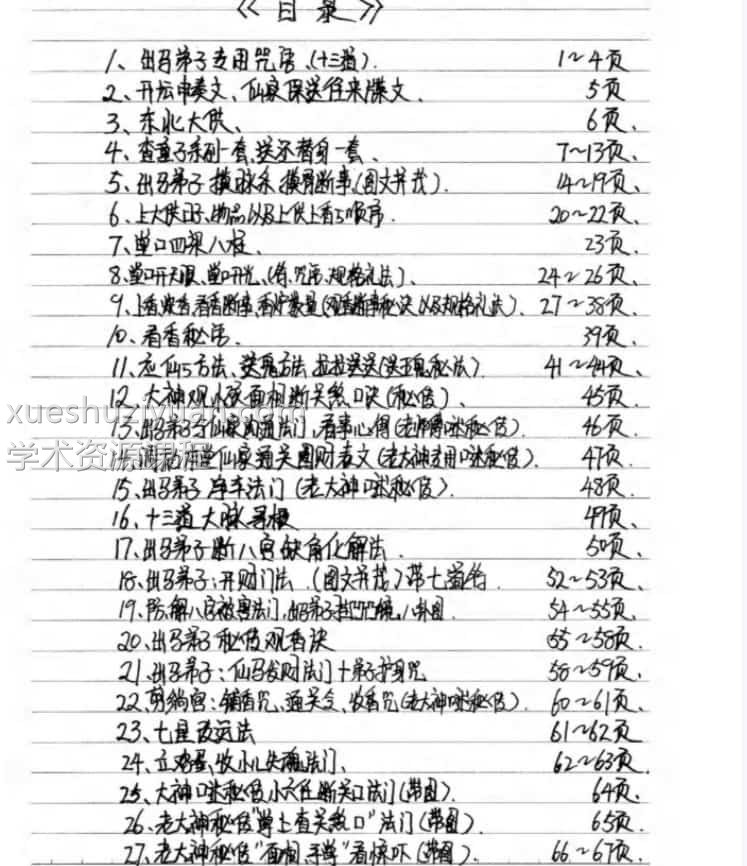 《目录》
1、出马弟子专用咒语、(十三道). 1~4页
2、开坛申奏文、仙家保送往来牒文、 5页
3、东北大供、 6页、
4、查童子亲列一套,送还替身一套、 7~13页、
5、出马弟子摸脉杀,摸骨断事,(图文并茂). 14~19页、
6、上大供日子、物品以及上供上香与顺序. 20~22页、
7、堂口四梁八柱、 23页、
8、堂口开天眼、堂口开光、(符.咒语.规格.礼法)、 24~26页、
9、上香 看香断事 以及规格礼法)、 27~38页、
10、看香秘语. 39页、
11、应仙与方法、送鬼方法、 41~44页、
12、大神观小家面相断关煞口诀(秘传)、 45页
13、出马弟子与仙家沟通法门、看事心得 46页
xueshuziyuan.com
学术资源课程
仙家通关图财表文(老大神专用口咪秘传)、 47页
15、出马弟子 法门(老大神口咪秘传)、 48页
16、十三道大脉寻根 49页、
17、出马弟子断八宫缺角化解法. 50页、
18、出马弟子:开财门法.(图文并茂)带七道符. 52~53页、
19、防、解八宫 法门、出马弟子 八卦图. 54~55页、
20、出马弟子秘传观香诀 55~58页、
21、出马弟子:仙马发财法门+弟子护身咒 58~59页、
22、 铺香咒、通关令、收香咒(老大神口咪秘传)、 60~61页、
23、七星改运法 61~62页
24、立鸡蛋,收小儿失魂法门、 62~63页、
25、大神口咪秘传小六任断关口法门(带图). 64页、
26、老大神秘传"掌上查关煞口"法门(带图). 65页、
27、老大神秘传"面相、手掌"看惊吓(带图). 66~67页、